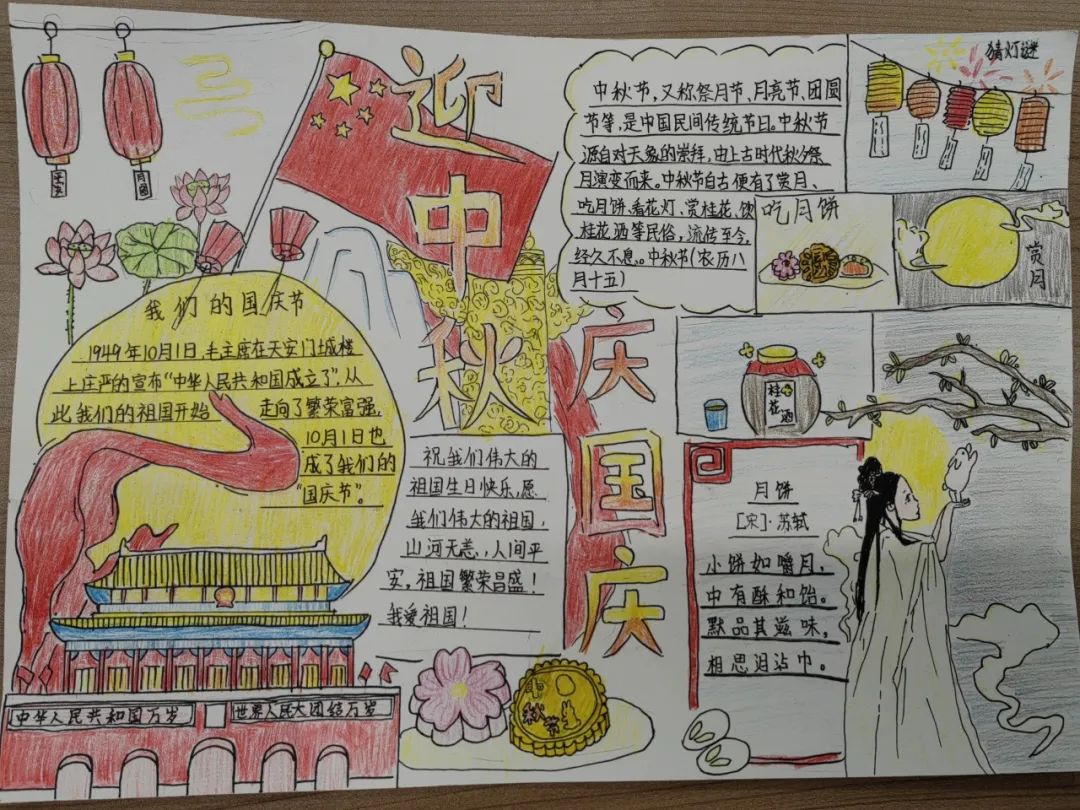 迎中秋
庆国庆
我们的国庆节
1949年10月1日,毛主席在天安门城楼
上庄严的宣布“中华人民共和国成立了”,从
此我们的祖国开始 走向了繁荣富强,
10月1日也
成了我们的
“国庆节”。
中华人民共和国万岁
世界人民大团结万岁
祝我们伟大的
祖国生日快乐,愿
我们伟大的祖国,
山河无恙,人间平
安,祖国繁荣昌盛!
我爱祖国!
中秋节
中秋节,又称祭月节、月亮节、团圆
节等,是中国民间传统节日。中秋节
源自对天象的崇拜,由上古时代秋夕祭
月演变而来。中秋节自古便有了赏月、
吃月饼、看花灯、赏桂花、饮
桂花酒等民俗,流传至今,
经久不息。中秋节(农历八
月十五)
猜灯谜
吃月饼
赏月
桂花酒
月饼
[宋]·苏轼
小饼如嚼月,
中有酥和饴。
默品其滋味,
相思泪沾巾。